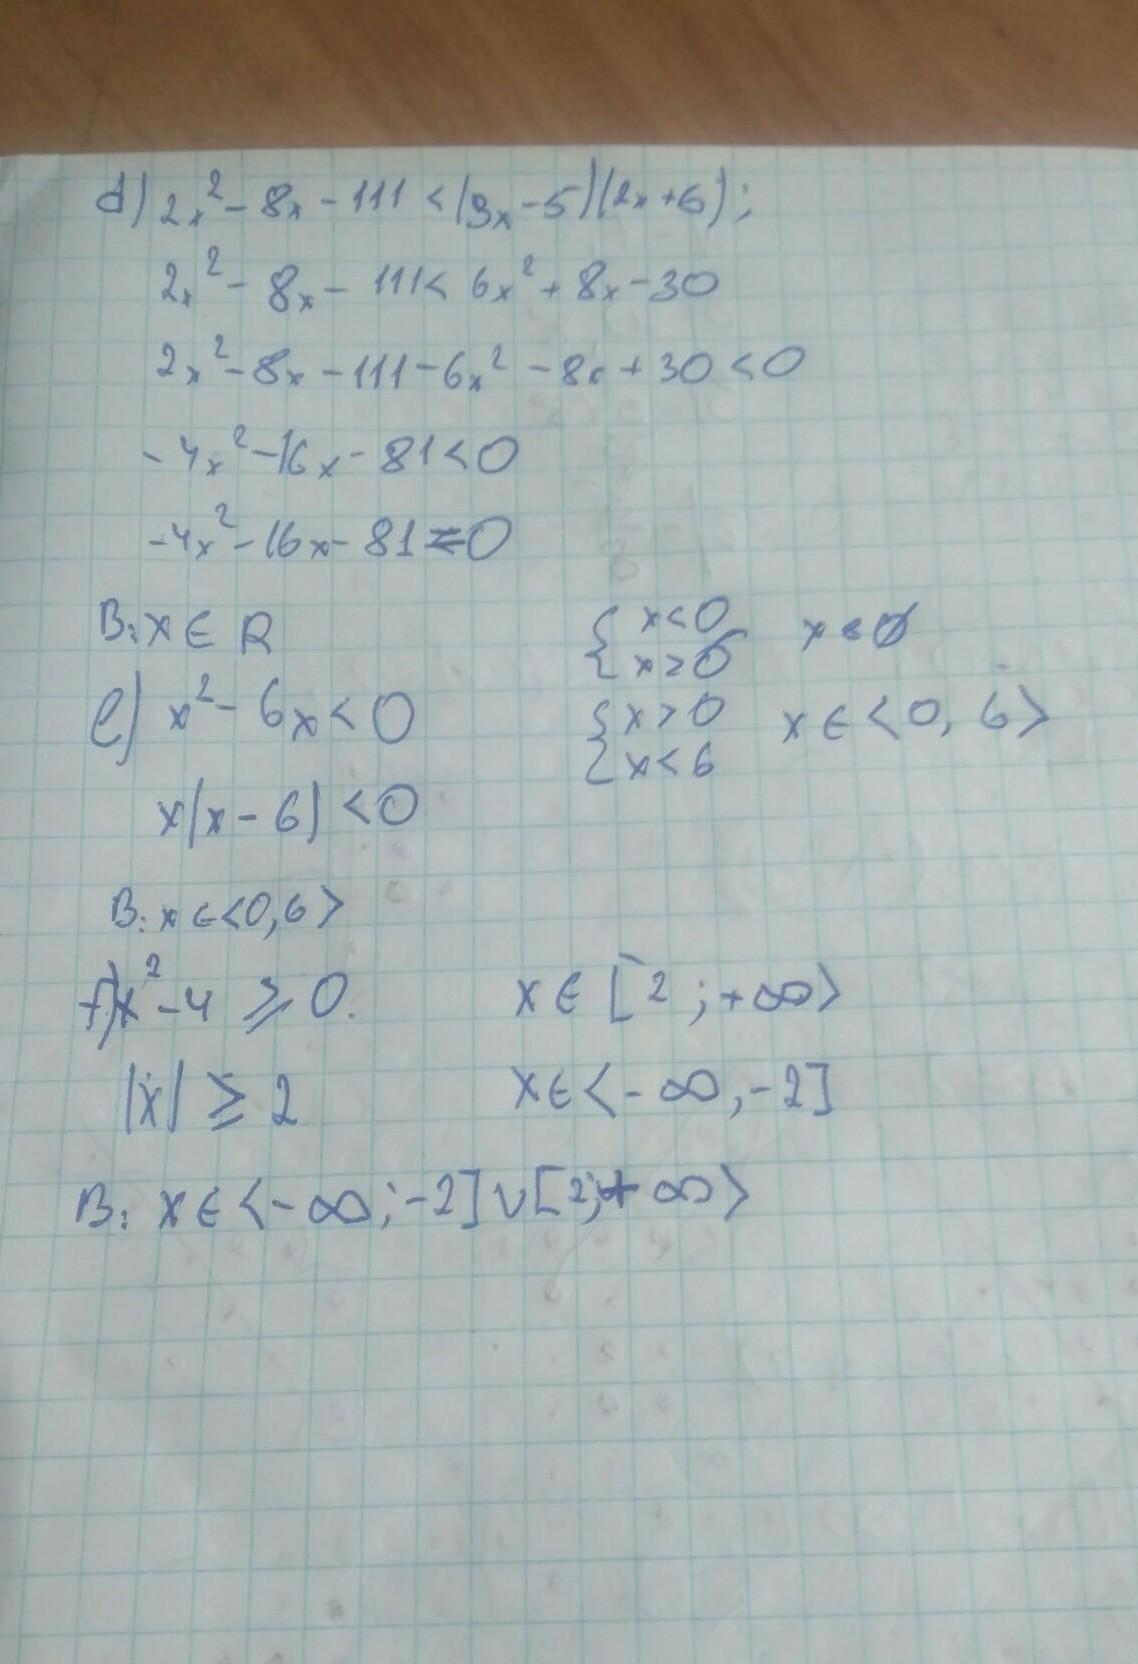 d) 2x² - 8x - 111 < (3x - 5)(2x + 6);
2x² - 8x - 111 < 6x² + 8x - 30
2x² - 8x - 111 - 6x² - 8x + 30 < 0
-4x² - 16x - 81 < 0
-4x² - 16x - 81 = 0
B: x ∈ R
{ x < 0
{ x > 6
x ∈ ∅
e) x² - 6x < 0
{ x > 0
{ x < 6
x ∈ <0, 6>
x(x - 6) < 0
B: x ∈ <0, 6>
f) x² - 4 ≥ 0.
x ∈ [2; +∞>
|x| ≥ 2
x ∈ <-∞, -2]
B: x ∈ <-∞; -2] ∪ [2; +∞>